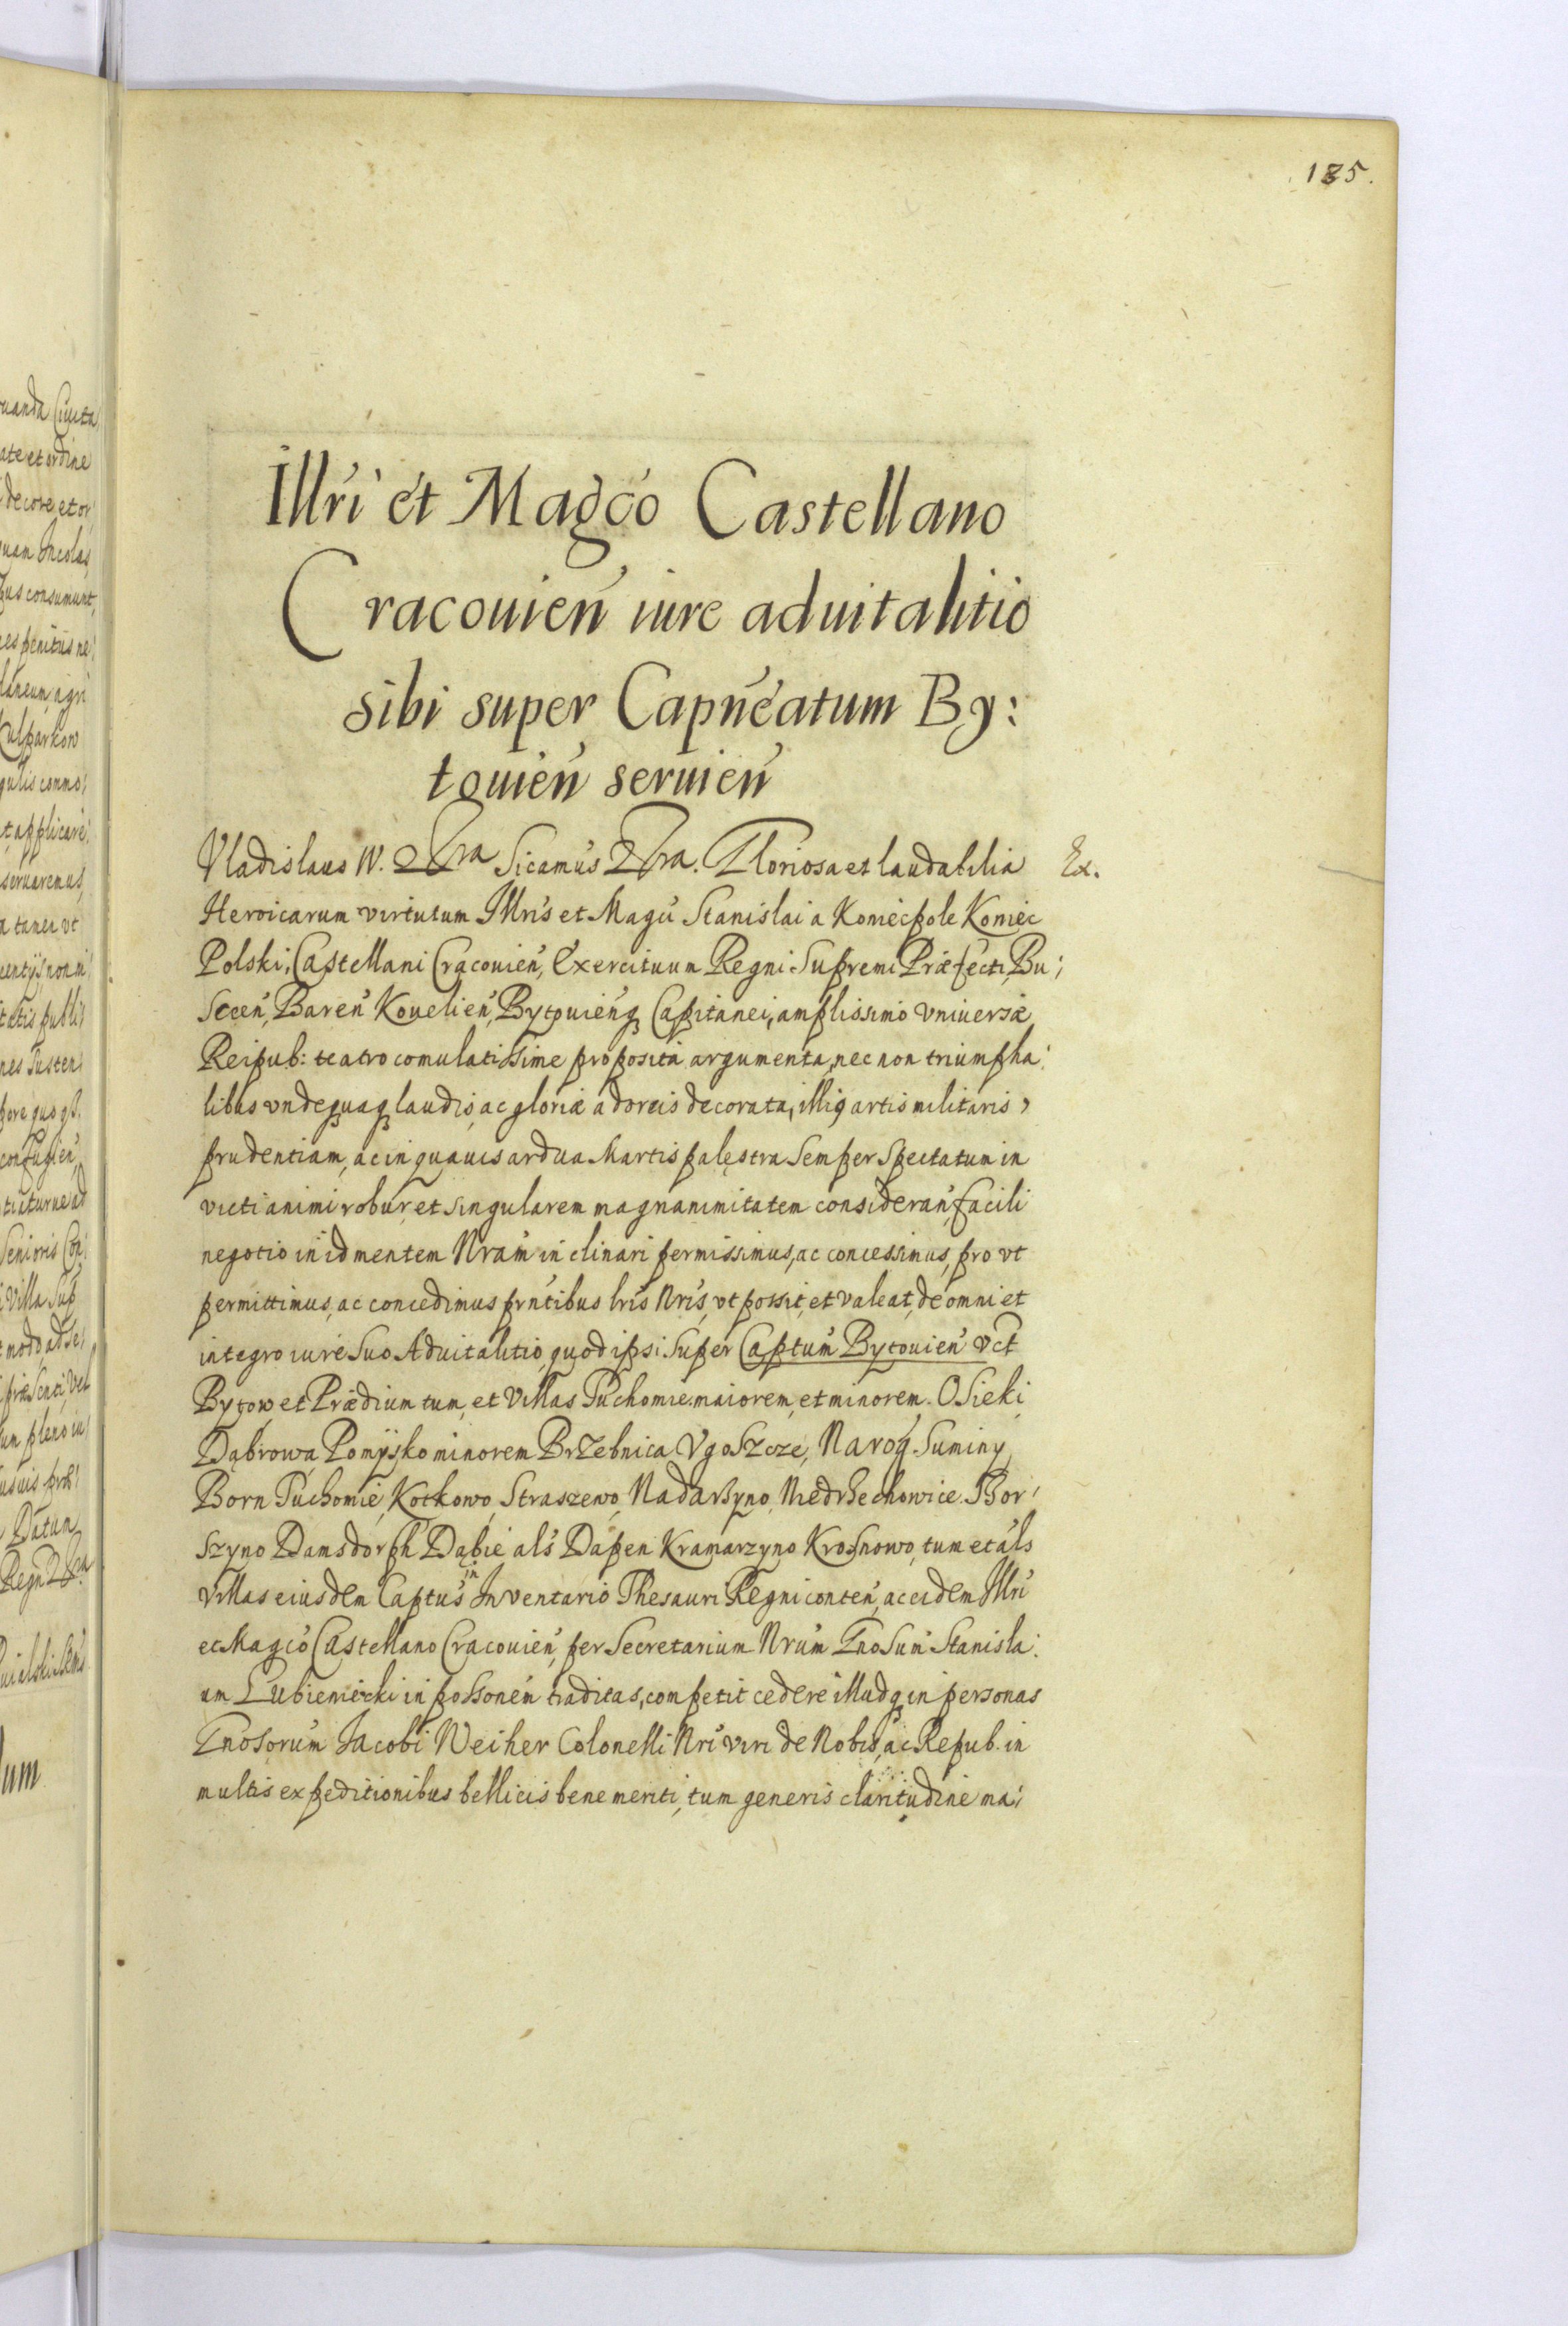 185.
Illri et Magco Castellano
Cracouien iure aduitalitio
sibi super Capneatum By:
touien seruien
Vladislaus IV. Sicamus Gloriosa et laudabilia Ex.
Heroicarum virtutum Illris et Magci Stanislai a Koniecpole Koniec
Polski, Castellani Cracouien, Exercituum Regni Supremi Præfecti, Bu:
Scen, Baren Kouelien, Bytouienq Capitanei, amplissimo vniversæ
Reipub: teatro comulatissime proposita argumenta, nec non triumpha:
libus vndequaq laudis, ac gloriæ adoreis decorata, illiq artis militaris
prudentiam, ac in quauis ardua Martis palestra Semper Spectatum in
victi animi robur, et singularem magnanimitatem consideran, facili
negotio in id mentem Nram inclinari permissimus, ac concessimus, pro vt
permittimus, ac concedimus prntibus lris Nris, vt possit, et valeat, de omni et
integro iure Suo Aduitalitio, quod ipsi Super Captum Bytouien vct
Bytow et Prædium tum, et Villas Tuchomie maiorem, et minorem. Osieki
Dąbrowa Pomysko minorem Brzebnica Vgoszcze, Suminy
Born Tuchomie, Kotkowo, Straszewo, Nadarzyno, Niedrzechowice. Bor:
szyno Damsdorph Dąbie als Dapen Kramarzyno Krosnowo, tum et als
Villas eiusdem Captus in Inventario Thesauri Regni conten, ac eidem Illri
et Magco Castellano Cracouien, per Secretarium Nrum Gnosun Stanisla:
um Lubieniecki in possonem traditas, competit cedere illudq in personas
Gnosorum Jacobi Weiher Colonelli Nri viri de Nobis, ac Repub. in
multis expeditionibus bellicis bene meriti, tum generis claritudine ma: